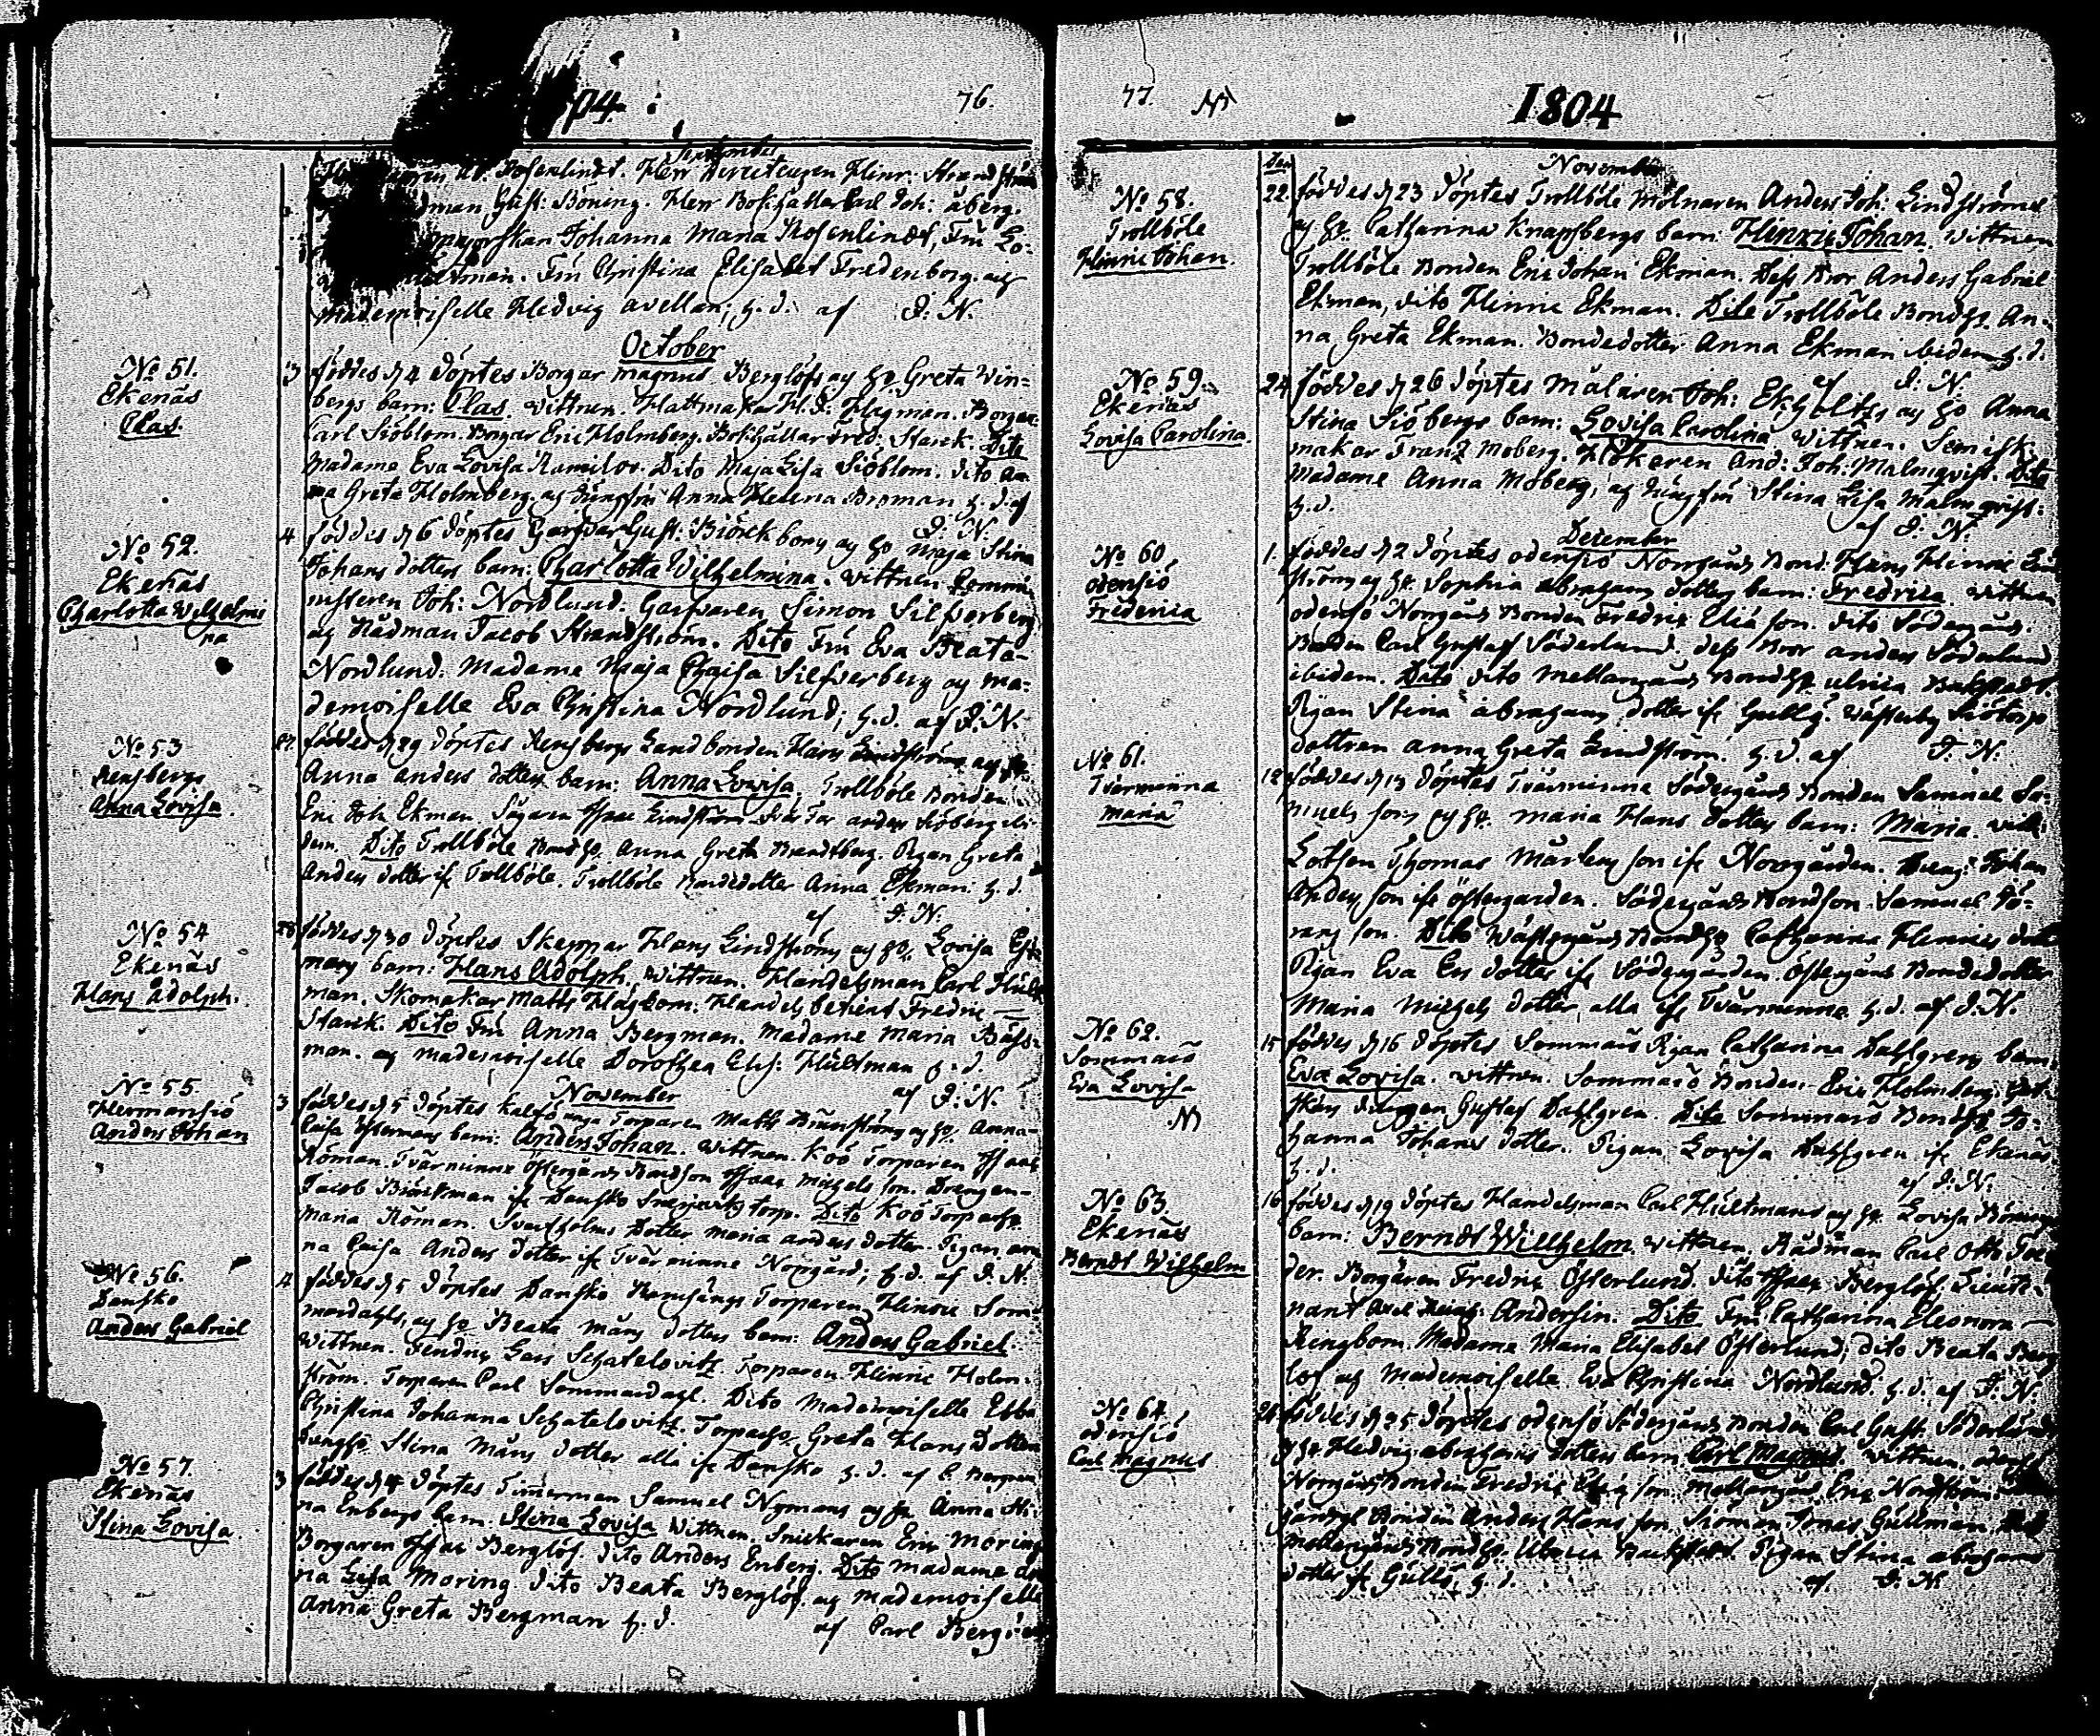 04.
76.
September
Rosenlindt. Herr Directeuren Hinr: Strandström
dman Gust: Böning. Herr Bokhållar Carl Joh: åberg.
Johanna Maria Rosenlindt, Fru Lo-
man. Fru Christina Elisabet Fredenborg. ag
mademoiselle Hedvig avellan; h. d. af J. N.
October
No 51.
Ekenäs
Clas.
3 föddes d 4 döptes Borgar magnus Berglöfs ag h. Greta Win-
bergs barn: Clas. wittnen. Hattmakar H. J. Hagman. Borgar
Carl Siöblom. Borgar Eric Holmberg. Bokhållar Fred: Starck. Dito
Madame Eva Lovisa Ramilor. Dito Maja Lisa Siöblom. dito An
na Greta Holmberg. ag Jungfru Anna Helena Broman h. d. af
J. N.
No 52.
Ekenäs
Charlotta Wilhelmi
na
4 föddes d 6 döptes Garfvar Gust: Biörckborg ag h. Maja Stina
Johans dotters barn: Charlotta Wilhelmina. wittnen Commi
nisteren Joh: Nordlund. Garfvaren Simon Silfverberg
ag Rådman Jacob Strandström. Dito Fru Eva Beata
Nordlund. Madame Maja Chaisa Silfverberg ag ma-
demoiselle Eva Christina Nordlund; h. d. af J. N.
No 53
Rensbergs
Anna Lovisa.
27. föddes d 29 döptes Rensbergs Landbonden Hans Lindströms ag h.
Anna anders dotters barn: Anna Lovisa. Trollböle Bonden
Eric Joh Ekman. Isaac Lindström anders Siöberg ibi
dem. Dito Trollböle Bond h. Anna Greta Brandtberg. Pigan Greta
Anders dotter if Trollböle. Trollböle Bondedotter Anna Ekman: h. d.
af J. N.
No 54
Ekenäs
Hans Adolph.
28 föddes d 30 döptes Skeppar Hans Lindströms ag h. Lovisa
mans barn: Hans Adolph. wittnen. Handelsman Carl Hult
man. Skomakar Matts Hagbom. Handels betient Fredric
Starck. Dito Fru Anna Bergman. Madame Maria
man. ag mademoiselle Dorothea Elis: Hultman h. d.
af J. N.
November
No 55.
Hermansiö
Anders Johan
3 föddes d 5 döptes Torparen Matts Brunströms ag h. Anna-
Caisa Östermans barn: Anders Johan. wittnen. Koö Torparen Isaac
Röman. Tvärminne Östergårds Bondson Isaac Michels son. Drengen
Jacob Biörckman if Danskö torp. Dito Koö Torpar h.
Maria Röman. Dotter Maria anders dotter. Pigan an
na Caisa Anders dotter if Tvärminne Norrgård; h. d. af J. N.
No 56.
Danskö
Anders Gabriel
4 föddes d 5 döptes Danskö Ramsängs Torparen Hinric Som-
mardahls ag h. Beata Måns dotters barn: Anders Gabriel.
Wittnen. Fendric Lars Schatelovitz. Torparen Hinric Holm-
ström. Torparen Carl Sommardahl. Dito Mademoiselle Ebba
Christina Johanna Schatelovitz. Torpar h. Greta Hans Dotter
Stina Måns dotter alla if Danskö h. d. af C. Bergman
No 57.
Ekenäs
Stina Lovisa.
3 föddes d 4 döptes Timerman Samuel Nymans ag h. Anna Sti-
na Enbergs barn. Stina Lovisa wittnen. Snickaren Eric Moring
Borgaren Isaac Berglöf. Dito Anders Enberg. Dito Madame An
na Lisa Moring. dito Beata Berglöf. ag mademoiselle
Anna Greta Bergman h. d. af Carl
77.
1804
Den
November
No 58.
Trollböle
Hinric Johan.
22. föddes d 23 döptes Trollböle Mölnaren Anders Joh: Lindströms
ag h. Catharina Knapsbergs barn: Hinric Johan. wittnen
Trollböle Bonden Eric Johan Ekman. Dess Bror Anders Gabriel
Ekman, dito Hinric Ekman. Dito Trollböle Bond h. An-
na Greta Ekman. Bondedotter Anna Ekman ibidem h. d.
af J. N.
No 59.
Ekenäs
Lovisa Carolina.
24 föddes d 26 döptes Målaren Joh: Ekholtz ag h. Anna
Stina Siöbergs barn: Lovisa Carolina wittnen. Semisk-
makar Franz Moberg. Hökaren And: Joh: Malmqvist. Dito
Madame Anna Moberg, ag Jungfru Stina Lisa Malmqvist:
h. d.
af J. N.
December
No 60
odensiö
Frederica
1. föddes d 2 döptes odensiö Norrgårds Bond: Hans Hinric Lind
ströms ag h. Sophia Abrahams dotters barn: Fredrica. wittnen
odensö Norgårds Bonden Fredric Elia son. dito Södergårds.
Bonden Carl Gustaf Söderlund. dess Bror anders Söderlund
ibidem. Dito dito mellangårds Bond h. ulrica
Pigan Stina abrahams dotter if Gullö. Wästerby
dottren anna Greta Lindström. h. d. af J. N.
No 61.
Tvermenna
Maria
12 föddes d 13 döptes Tvärminne Södergårds Bonden Samuel Sa-
muels sons ag h. Maria Hans dotters barn: Maria. wittn:
Lotsen Thomas Mårtens son if Norrgården. Dreng: Johan
Anders son if Östergarden. Södergårds Bondson Samuel Gö-
rans son. Dito Wästergårds Bond h. Catharina Hinrics dott
Pigan Eva Ers dotter if Södergården. Östergårds Bondedotter
Maria Michels dotter, alla if Tvärminne h. d. af J. N.
No 62.
Sommarö
Eva Lovisa
15 föddes d 16 döptes Sommarö Pigan Catharina Dahlgrens barn.
Eva Lovisa. wittnen. Sommarö Bonden. Eric Holmberg.
Gustaf Dahlgren. Dito Sommarö Bond h. Jo-
hanna Johans dotter. Pigan Lovisa Dahlgren if Ekenäs
h. d.
af J. N.
No 63.
Ekenäs
Berndt Wilhelm
16 föddes d 19 döptes Handelsman Carl Hultmans ag h. Lovisa Bönings
barn: Berndt Willhelm. wittnen. Rådman Carl Otto
der. Borgaren Fredric Österlund. dito Isaac Berglöf. Lieute-
nant Axel Andersin. Dito Fru Catharina Eleonora
Rengbom. Madame Maria Elisabet Österlund; dito Beata Berg
löf ag Mademoiselle Eva Christina Nordlund h. d. af J. N.
No 64.
odensiö
Carl Magnus
24. föddes d 25 döptes odensö Södergårds Bonden Carl Gust. Söderlunds
ag h. Hedvig abrahams dotters barn Carl Magnus. wittnen. odensö
Norgårds Bonden Fredric Elia son. Mellangårds Eric Nordström.
Bonden Anders Hans son Jonas Gullman.
mellangårds Bond h. Ulrica Pigan Stina abrahams
dotter if Gullö. h. d. af J. N.